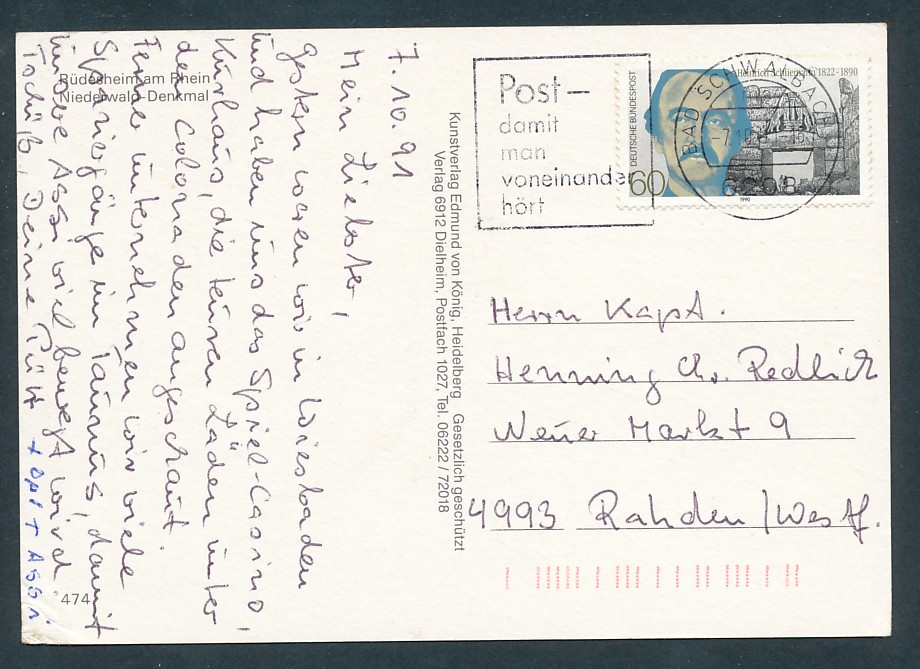 Rüdesheim am Rhein
Niederwald-Denkmal
7.10.91
Mein Liebster,
gestern waren wir in Wiesbaden
und haben uns das Spiel-Cassino,
Kurhaus, die teuren Läden unter
den Colonaden angeschaut.
Ferner unternehmen wir viele
Spaziergänge im Taunus, damit
unsere Assi viel bewegt wird.
Tschüß, Deine
+ Opi + Assi
474
Kunstverlag Edmund von König, Heidelberg Gesetzlich geschützt
Verlag 6912 Dielheim, Postfach 1027, Tel. 06222 / 72018
Post –
damit
man
voneinander
hört
DEUTSCHE BUNDESPOST
60
Heinrich Schliemann 1822-1890
1990
BAD SCHWALBACH
6208
Herrn Kapt.
Henning Chr. Redlich
Neuer Markt 9
4993 Rahden/Westf.